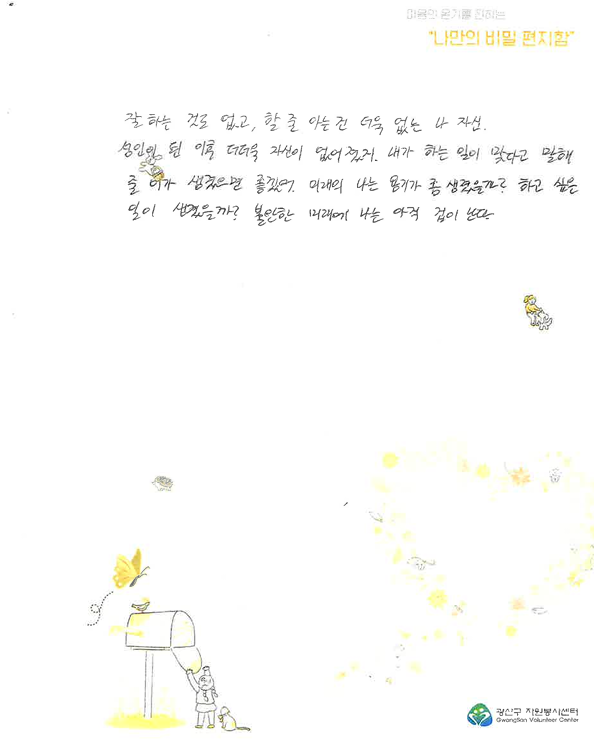 마음의 온기를 전하는
"나만의 비밀 편지함"
잘 하는 것도 없고, 할 줄 아는건 더욱 없는 나 자신.
성인이 된 이후 더더욱 자신이 없어졌지. 내가 하는 일이 맞다고 말해
줄 이가 생겼으면 좋겠어. 미래의 나는 용기가 좀 생겼을까? 하고 싶은
일이 생겼을까? 불안한 미래에 나는 아직 겁이 난다.
광산구 자원봉사센터
GwangSan Volunteer Center